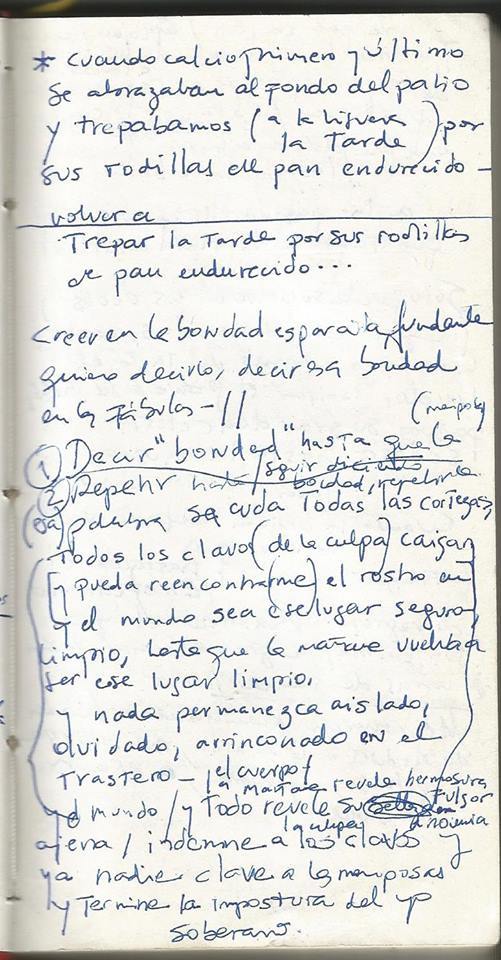 * cuando calcio primero y último
se abrazaban al fondo del patio
y trepábamos (a la higuera
la Tarde) por
sus rodillas de pan endurecido -
volver a
Trepar la Tarde por sus rodillas
de pan endurecido...
Creer en la bondad es para la
quiero decirlo, decir esa bondad
en las Fábulas - //
(mariposa)
① Decir "bondad" hasta que la
② Repetir hasta / seguir diciendo
bondad, repetirla
(esa) palabra se cuda Todas las cortezas,
Todos los clavos (de la culpa) caigan
y pueda reencontrar(me) el rostro en
y el mundo sea ese lugar seguro,
limpio, hasta que la madre vuelva a
ser ese lugar limpio.
y nada permanezca aislado,
olvidado, arrinconado en el
Trastero - / el cuerpo /
la madre revele hermosura
y el mundo / y Todo revele su fulsor
ajena / indemne a los clavos y
la culpa y
ya nadie clave a las mariposas
y Termine la impostura del yo
soberano.